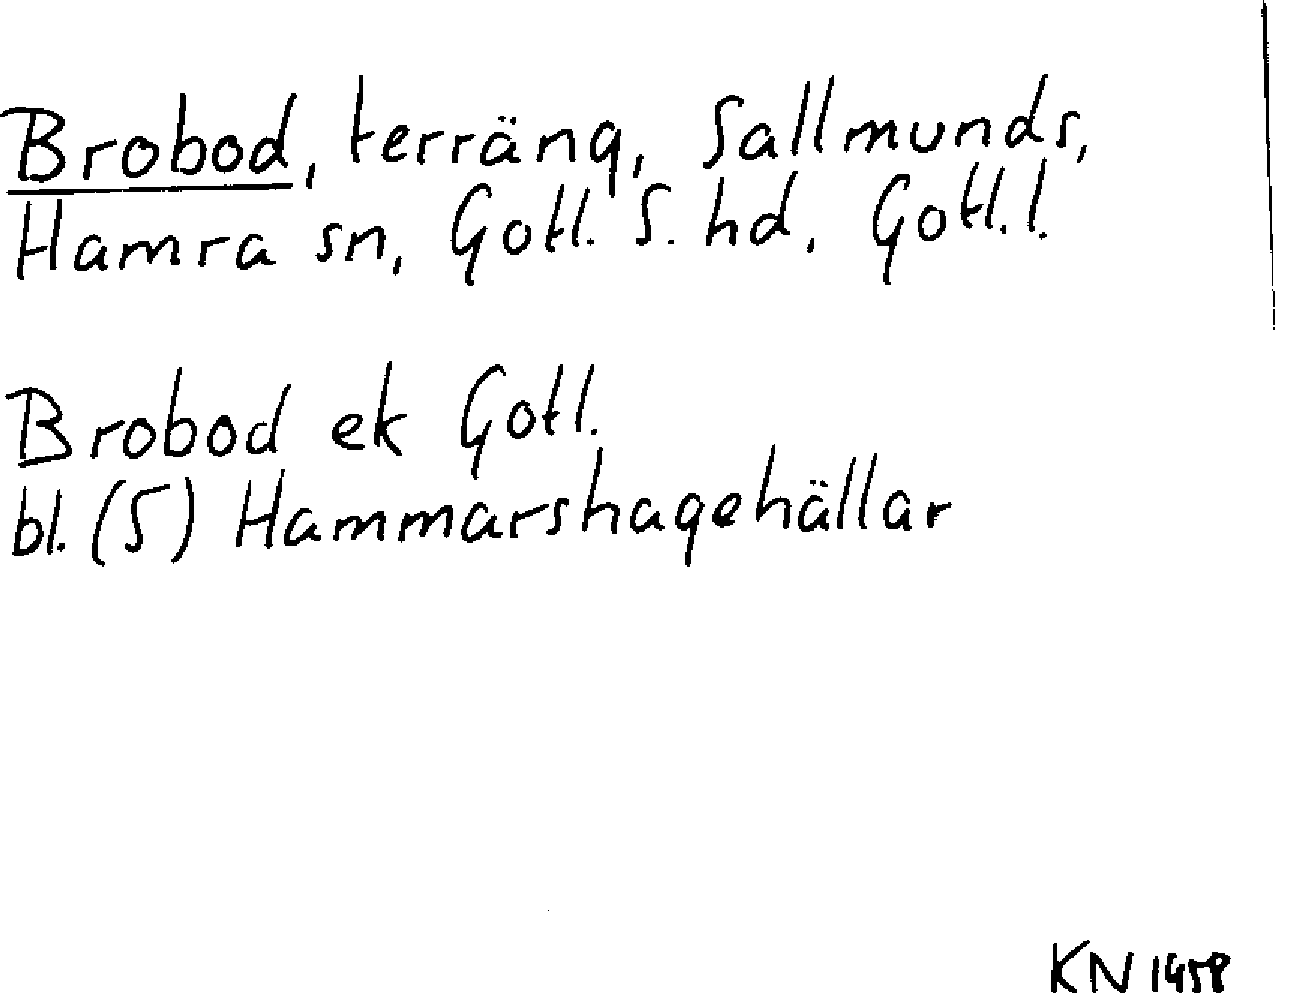 Brobod, terräng, Sallmunds,
Hamra sn, Gotl. S. hd, Gotl. l.
Brobod ek Gotl.
bl. (5) Hammarshagehällar
KN 1958